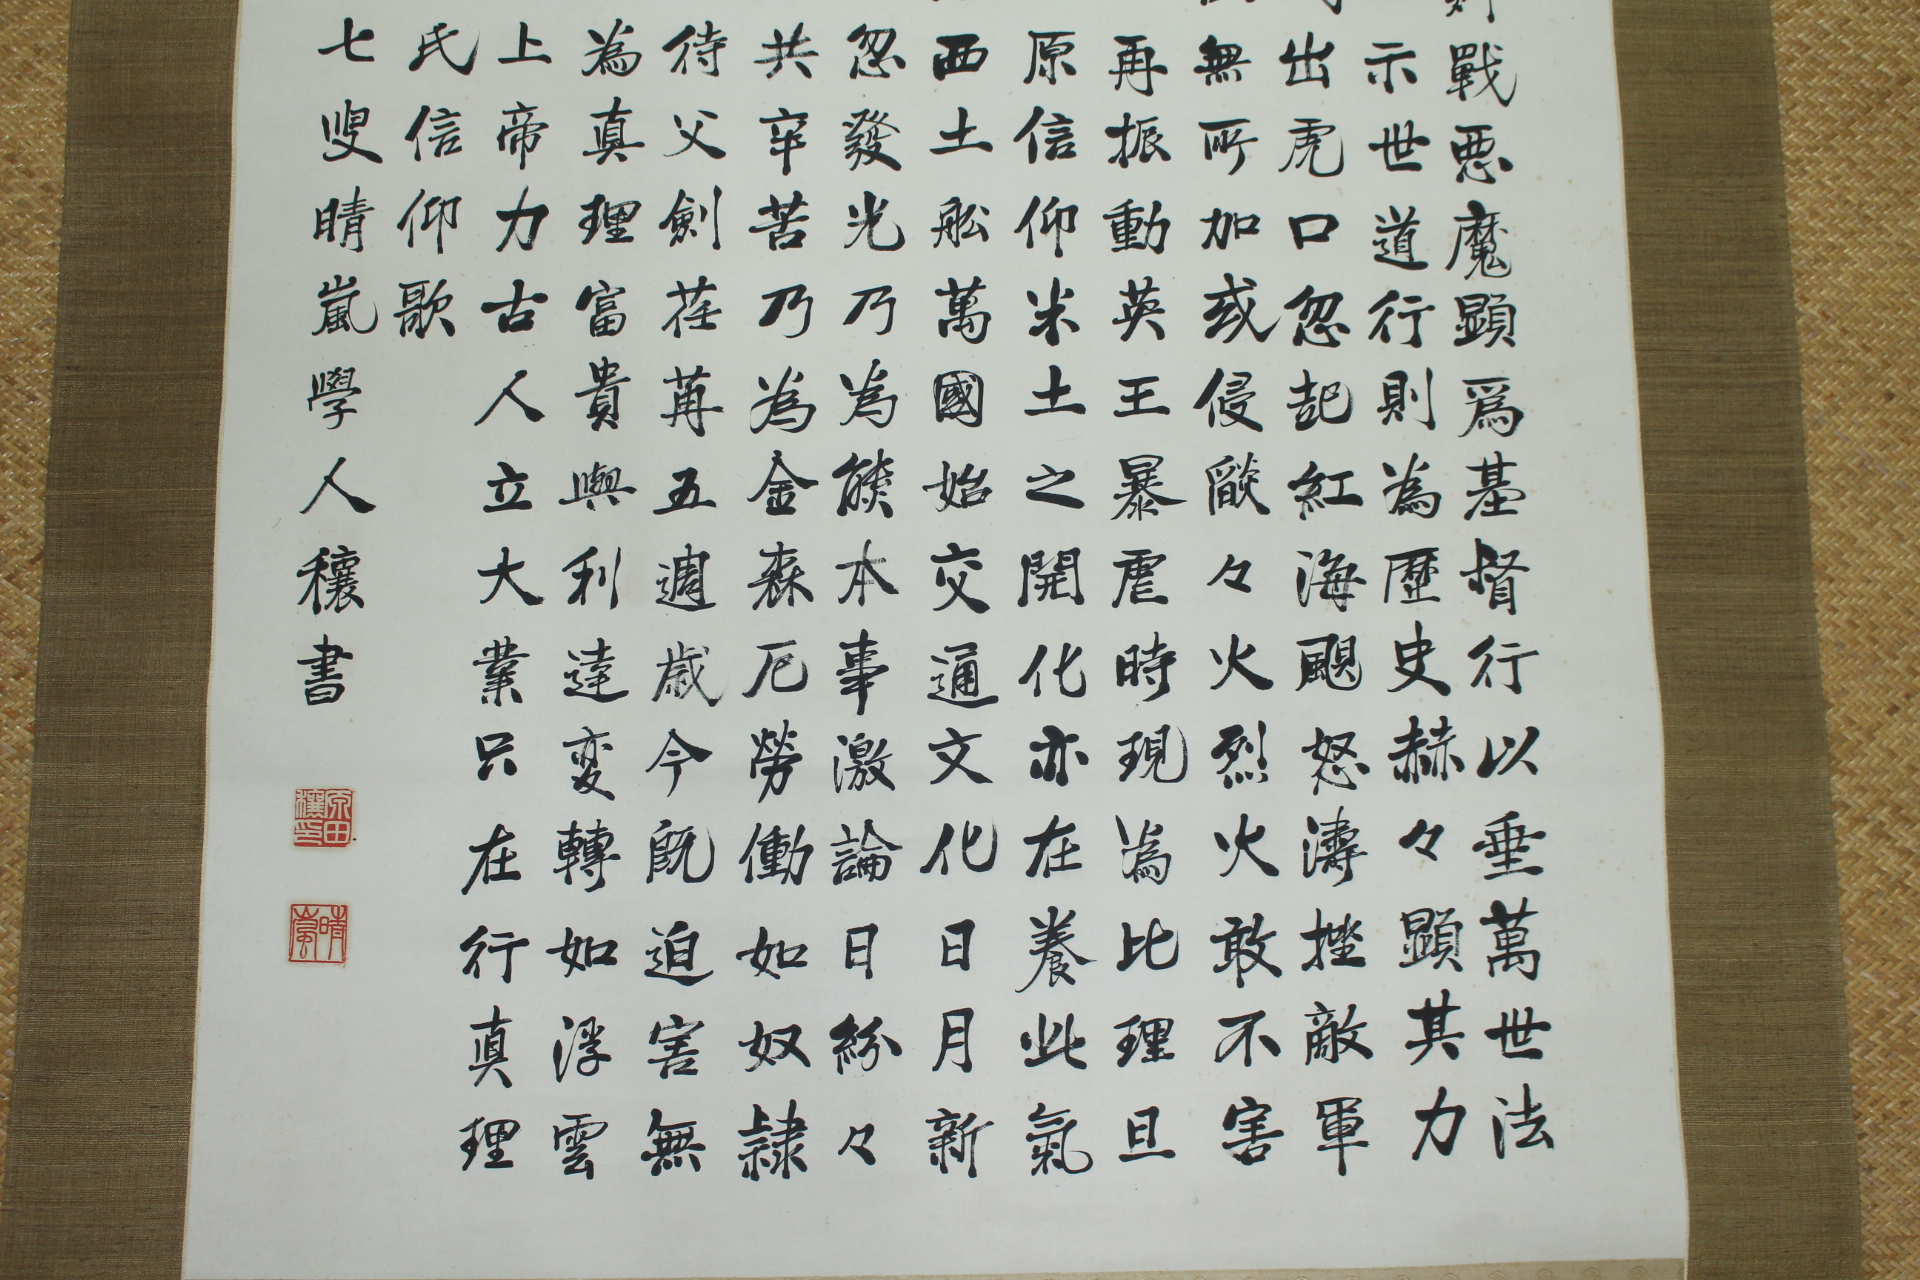 戰悪魔顕爲基督行以垂萬世法
示世道行則為歴史赫々顕其力
出虎口忽起紅海颶怒濤挫敵軍
無所加或侵燄々火烈火敢不害
再振動英王暴虐時現為比理旦
原信仰米土之開化亦在養此氣
西土舩萬國始交通文化日月新
忽發光乃為熊本事激論日紛々
共辛苦乃為金森厄勞働如奴隷
待父劍荏苒五週歳今既迫害無
為真理富貴與利達変轉如浮雲
上帝力古人立大業只在行真理
民信仰歌
七叟晴嵐學人穰書
原田穰印
晴嵐